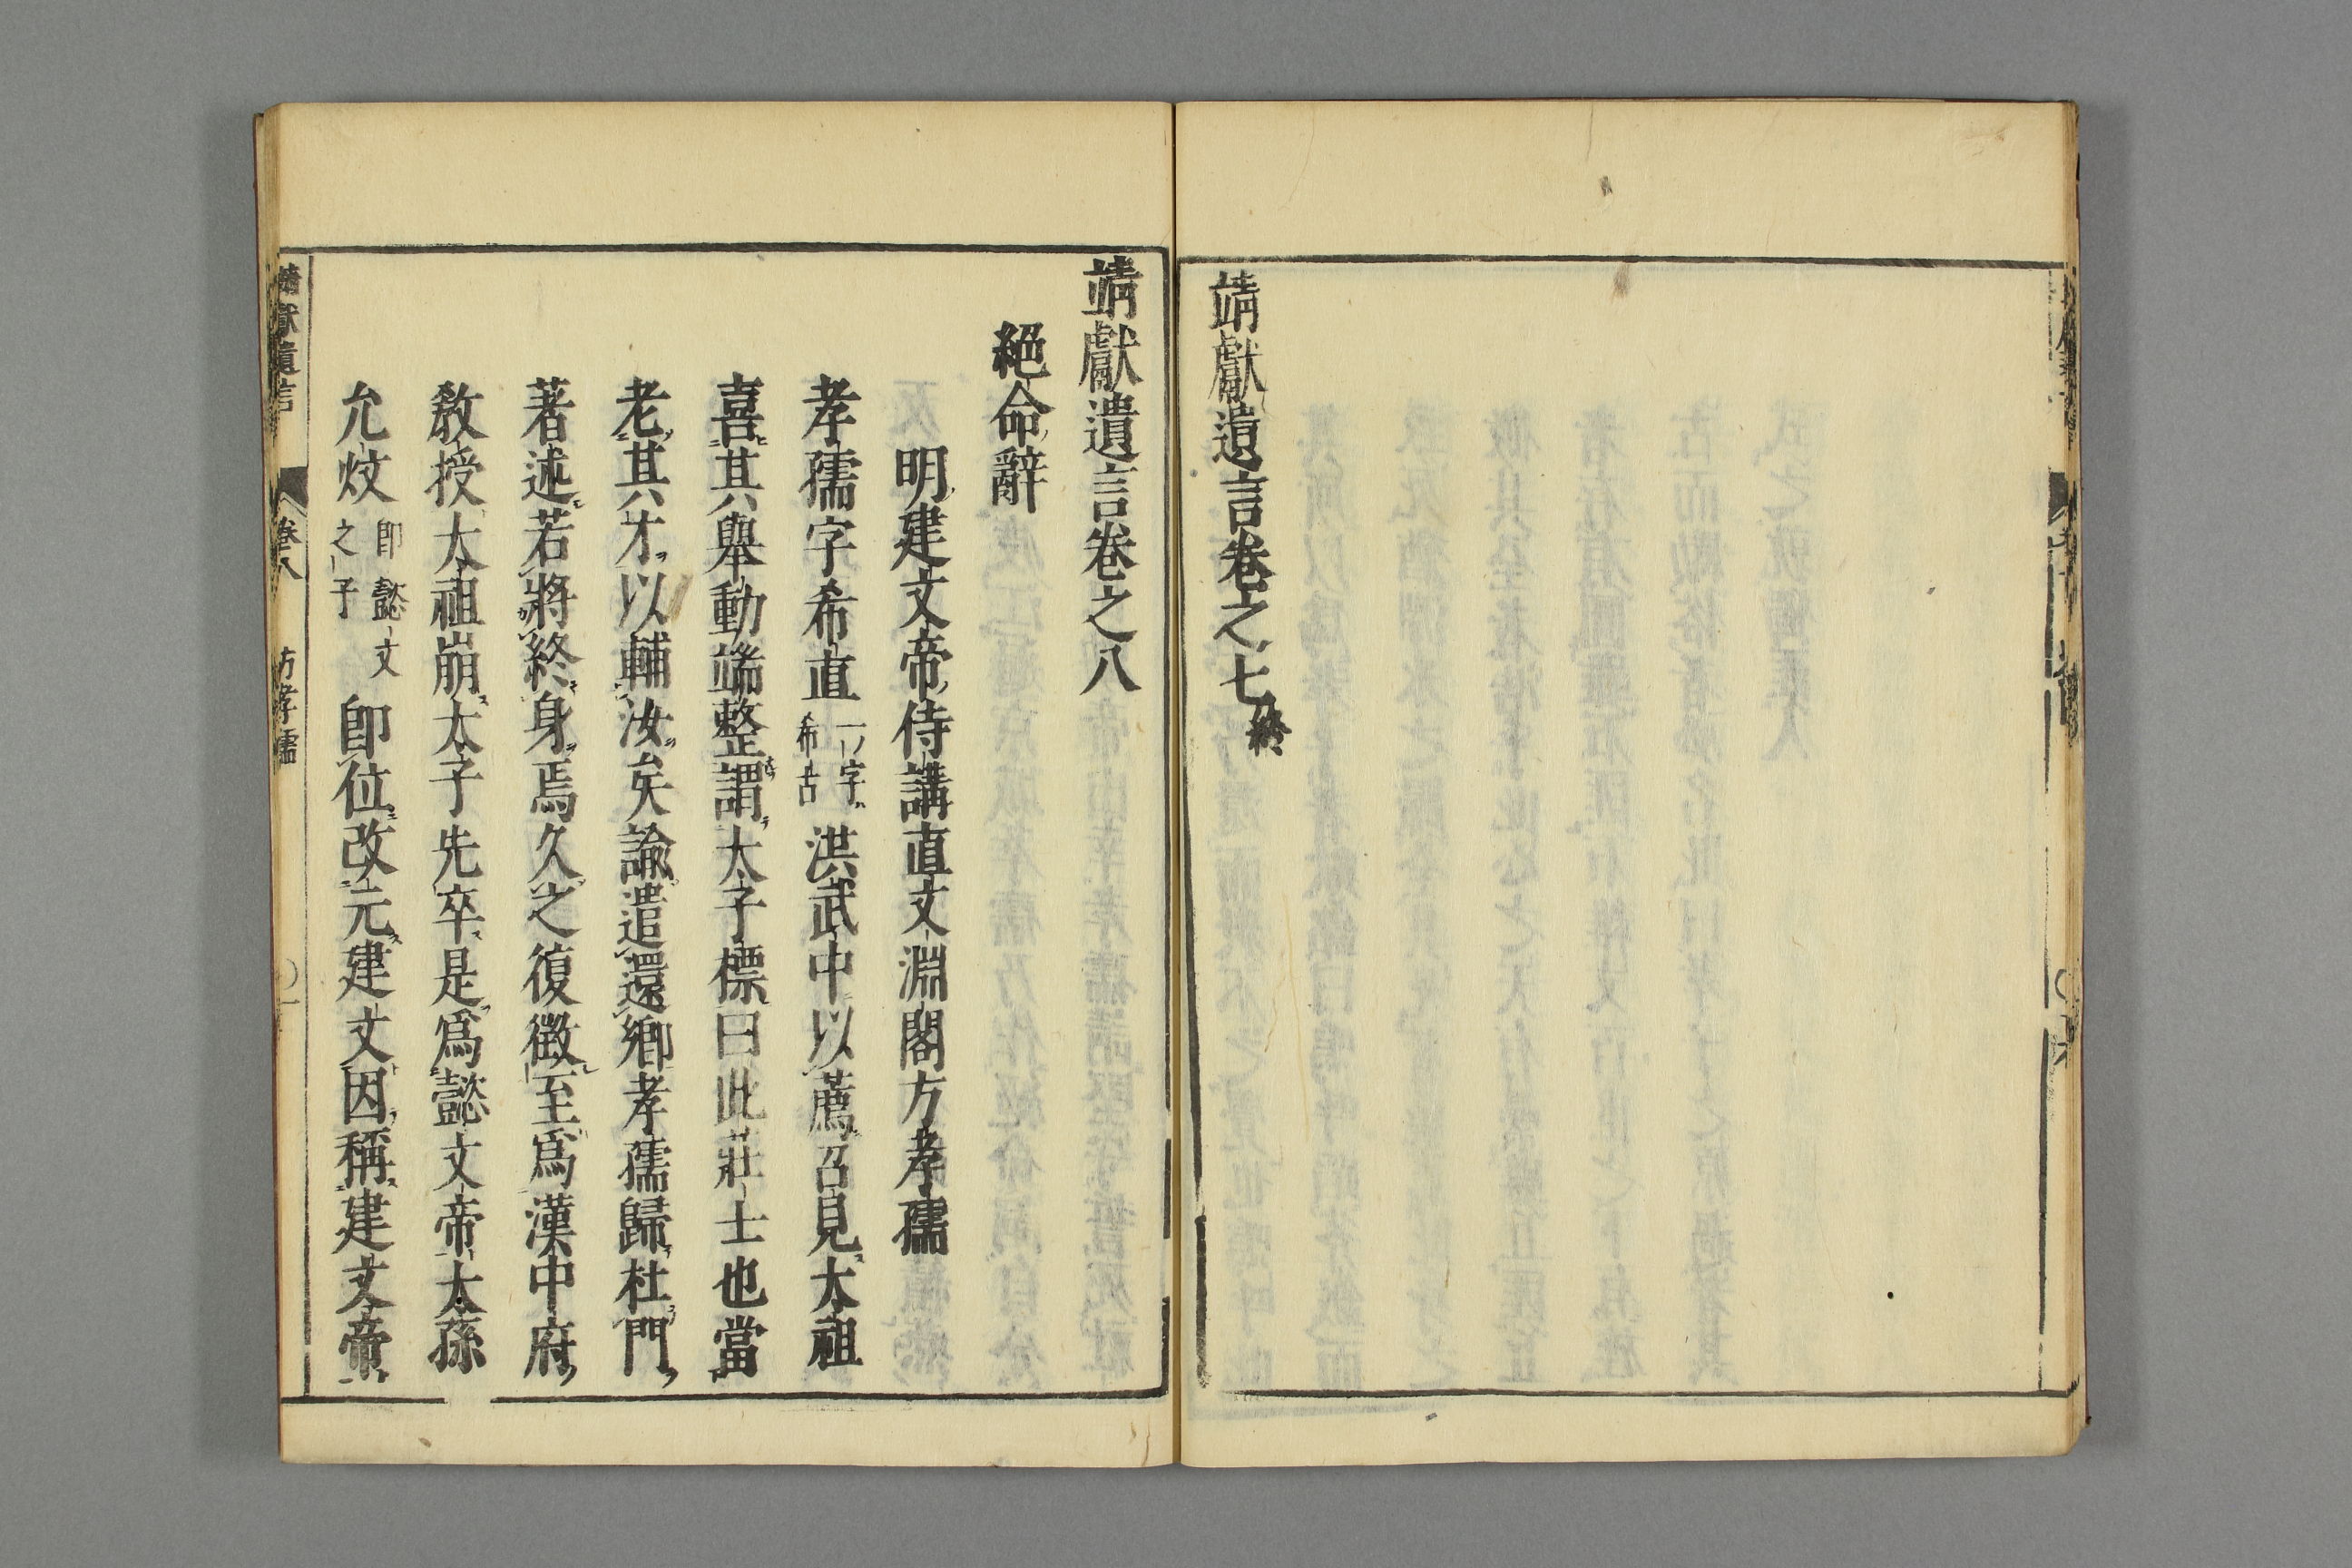 靖獻遺言卷之七終
靖獻遺言卷之八
絕命辭
明建文帝侍講直文淵閣方孝孺
孝孺字希直一字希古洪武中以薦召見太祖
喜其舉動端整謂太子標曰此莊士也當
老其才以輔汝矣諭遣還鄉孝孺歸杜門
著述若將終身焉久之復徵至爲漢中府
敎授太祖崩太子先卒是爲懿文帝太孫
允炆卽懿文之子卽位改元建文因稱建文帝
靖獻遺言 卷八 方孝孺 〇一